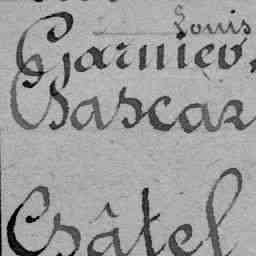 Louis
Garnier,
Gascar
Châtel